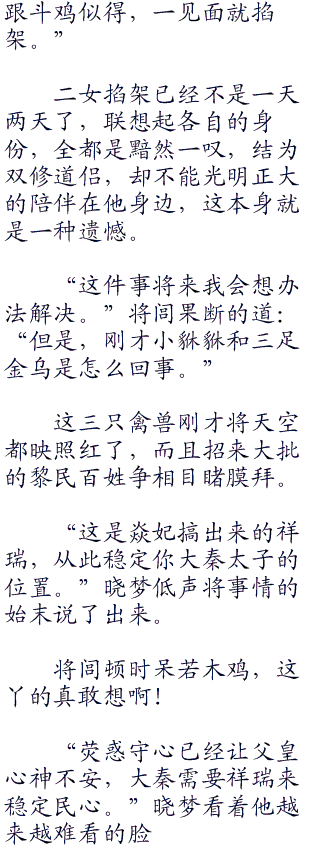 跟斗鸡似得，一见面就掐
架。”
二女掐架已经不是一天
两天了，联想起各自的身
份，全都是黯然一叹，结为
双修道侣，却不能光明正大
的陪伴在他身边，这本身就
是一种遗憾。
“这件事将来我会想办
法解决。”将闾果断的道：
“但是，刚才小貅貅和三足
金乌是怎么回事。”
这三只禽兽刚才将天空
都映照红了，而且招来大批
的黎民百姓争相目睹膜拜。
“这是焱妃搞出来的祥
瑞，从此稳定你大秦太子的
位置。”晓梦低声将事情的
始末说了出来。
将闾顿时呆若木鸡，这
丫的真敢想啊！
“荧惑守心已经让父皇
心神不安，大秦需要祥瑞来
稳定民心。”晓梦看着他越
来越难看的脸